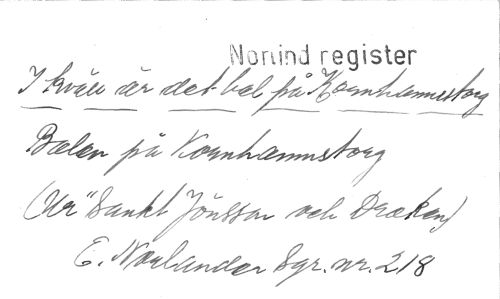 Norlind register
I kväll är det bal på Kornhamnstorg
Balen på Kornhamnstorg
(Ur "Sankt Jönsson och Draken)
E. Norlander Sgr. nr. 218